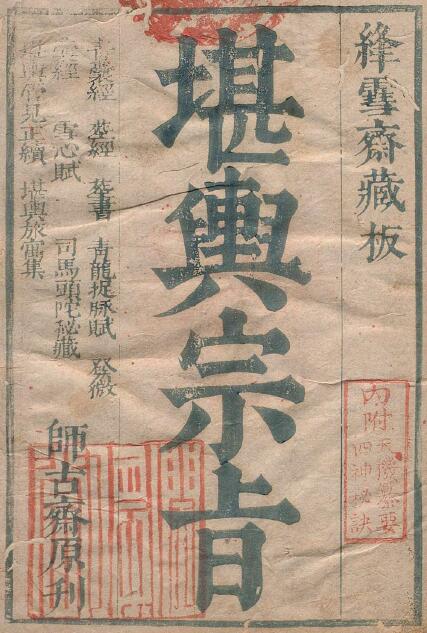 絳雪齋藏板
內附
四神秘訣
堪輿宗旨
青囊經 葬經 葬書 青龍捉脉賦 發微
經 雪心賦 司馬頭陀秘藏
堪輿管見正續 堪輿旅寓集
師古齋原刊